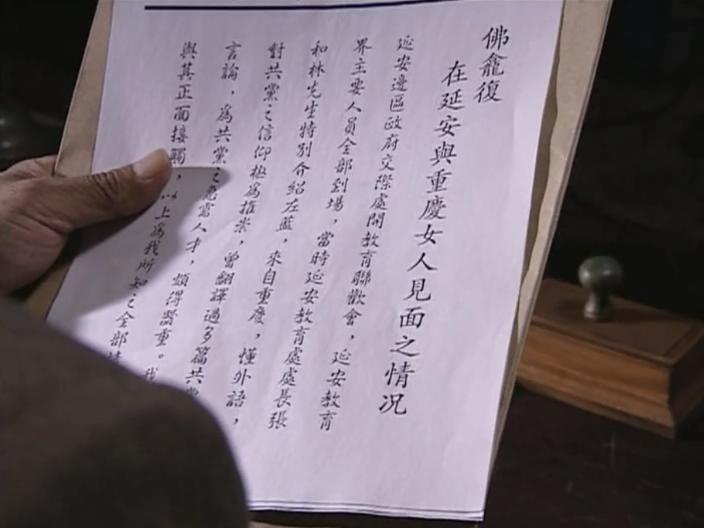 佛龕復
在延安與重慶女人見面之情况
延安邊區政府交際處開教育聯歡會，延安教育
界主要人員全部到場，當時延安教育處處長張
和林先生特別介紹左藍，來自重慶，懂外語，
對共黨之信仰極為推崇，曾翻譯過多篇共黨
言論，為共黨之 人才，頗得器重。我
與其正面接觸，以上為我所知之全部情